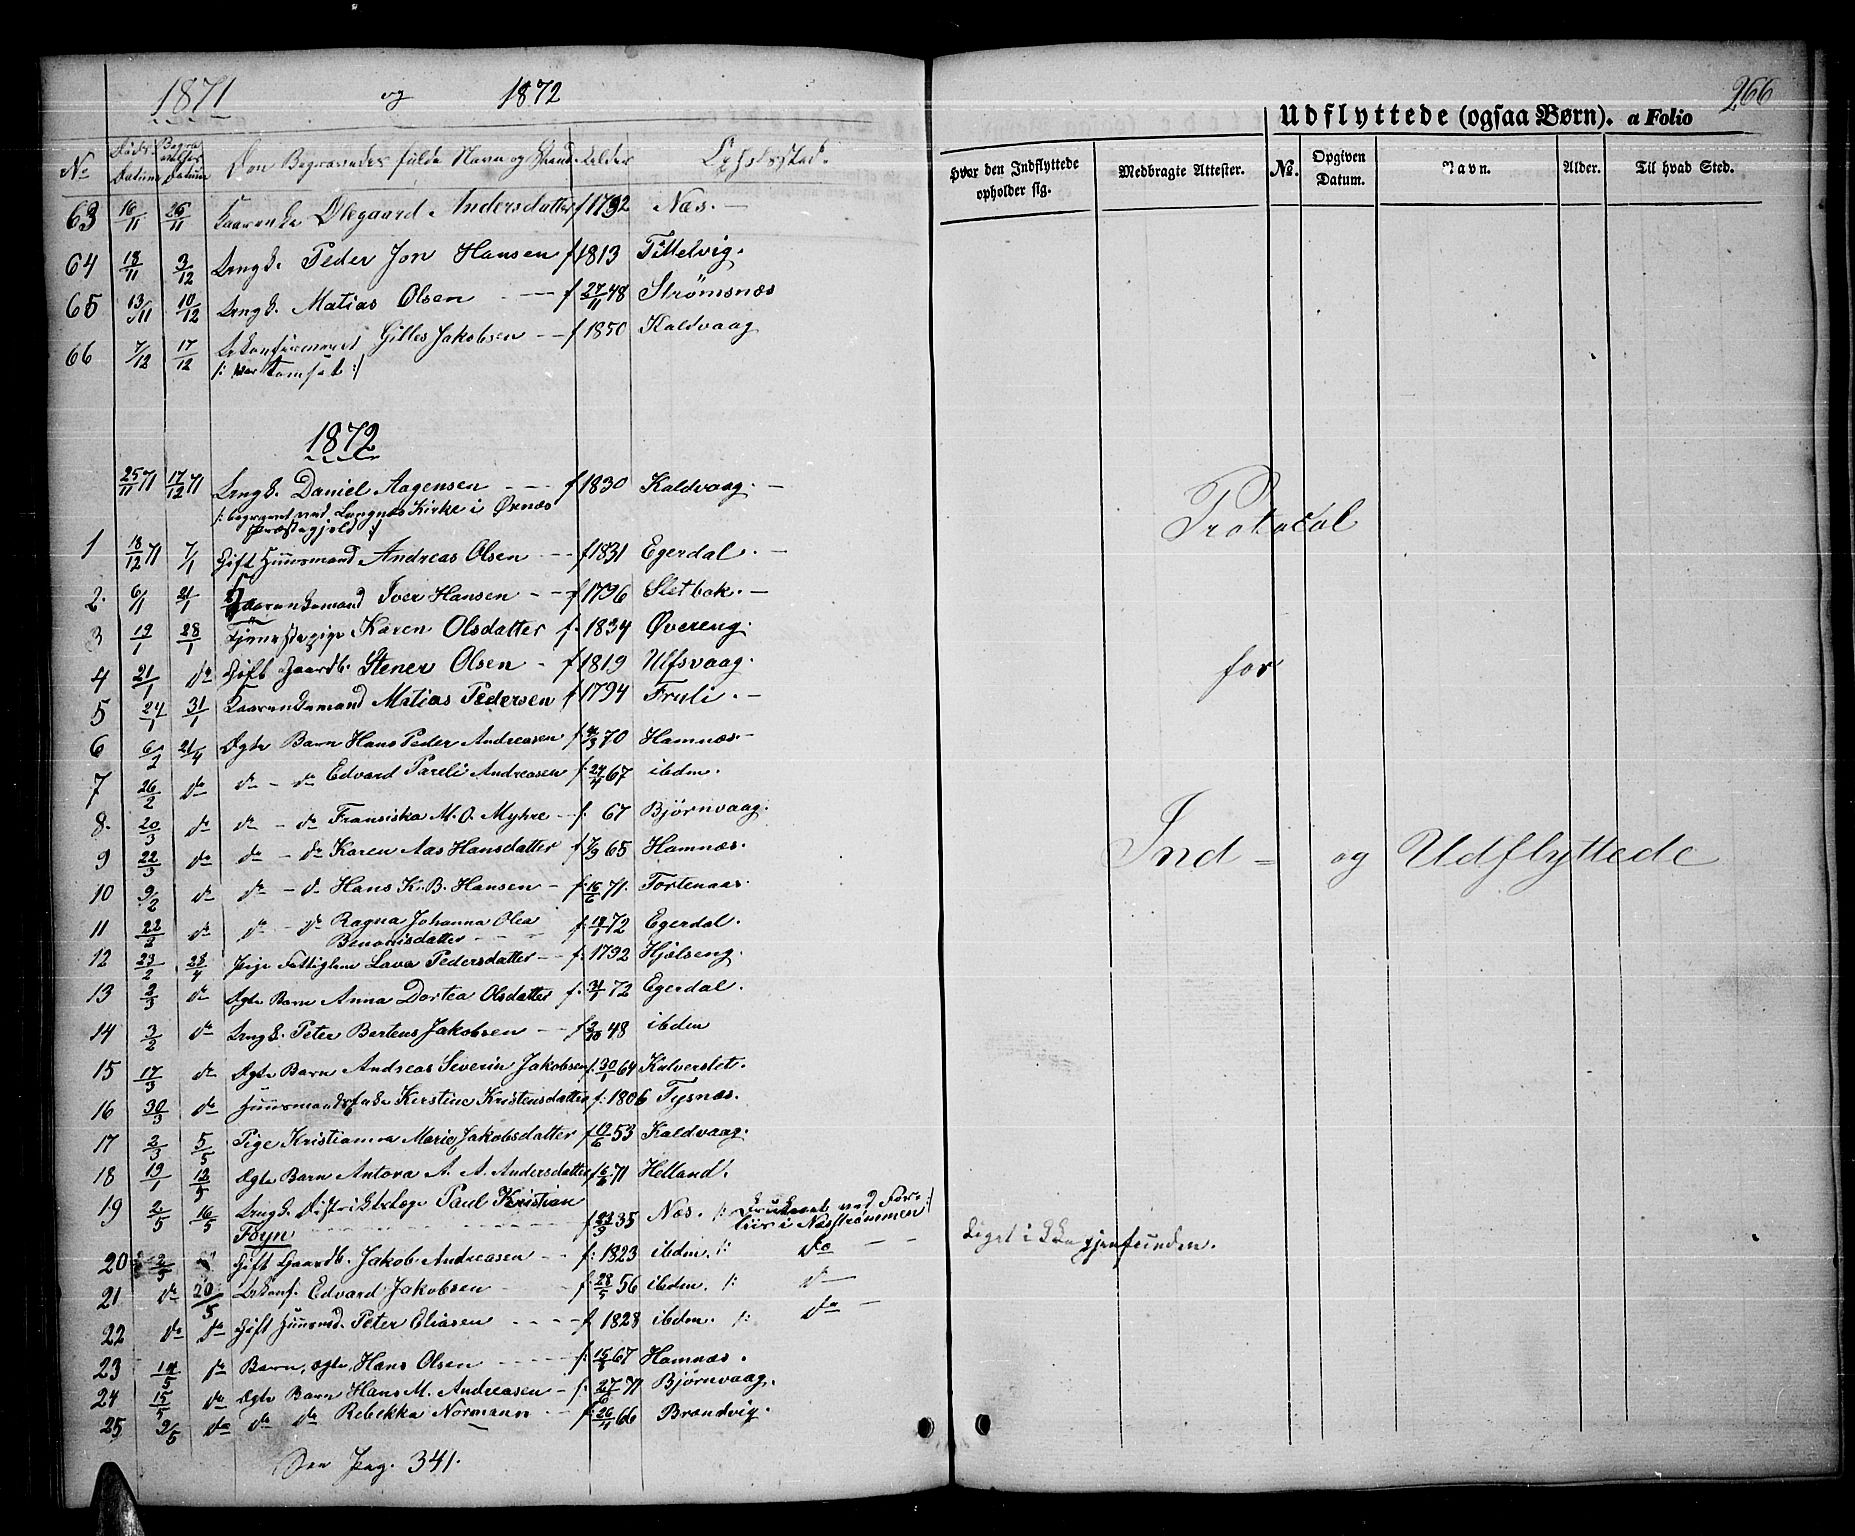 1871 og 1872
No Døds-Datum Begravelses Datum Den Begravedes fulde Navn og Stand. Alder Opholdssted.
63 16/11 26/11 Kaarenke Olegaard Andersdatter f 1792 Næs. —
64 18/11 3/12 Ungk. Peder Jon Hansen f 1813 Tittelvig.
65 13/11 10/12 Ungk. Matias Olsen f 27/11 48 Strømsnæs
66 7/12 17/12 Ukonfirmeret Gilles Jakobsen f 1850 Kaldvaag
/: vantomsat :/
1872
25/11 71 17/12 71 Ungk. Daniel Aagensen f 1830 Kaldvaag. —
/: begravet ved Lungnes Kirke i Øxnæs
Præstegjeld :/
1 18/12 71 7/1 Gift Huusmand Andreas Olsen f 1831 Egerdal. —
2. 6/1 21/1 Kaarenkemand Iver Hansen f 1796 Sletbak. —
3 19/1 28/1 Tjenestepige Karen Olsdatter f. 1834 Øvereng.
4 21/1 do Gift Gaardb. Stener Olsen f 1819 Ulfsvaag.
5 24/1 31/1 Kaarenkemand Matias Pedersen f 1794 Fruli. —
6 6/2 21/4 Ægte Barn Hans Peder Andreasen f. 70 Hamnæs. —
7 26/2 do do - do Edvard Pareli Andreasen f. 24/4 67 ibdm.
8. 20/3 do do - do Fransiska M. O. Myhre f. 67 Bjørnvaag.
9 22/3 do do - do Karen Aas Hansdatter f 65 Hamnæs.
10 9/2 do do - do Hans K. B. Hansen f. 15/6 71. Tortenaas.
11 22/2 do do - do Ragna Johanna Olea f. 18/1 72 Egerdal.
Benonisdatter
12 23/2 28/4 Pige Fattiglem Lava Pedersdatter f. 1792 Hjelseng.
13 2/3 do Ægte Barn Anna Dortea Olsdatter f. 72 Egerdal.
14 3/2 do Ungk. Peter Bertens Jakobsen f 2/10 48 ibdm
15 17/3 do Ægte Barn Andreas Severin Jakobsen f. 30/1 64 Kalverslet.
16 30/3 do Huusmandsenke Kerstine Kristensdatter f. 1806 Tysnæs.
17 2/3 5/5 Pige Kristianna Marie Jakobsdatter f 12/6 53 Kaldvaag.
18 19/1 12/5 Ægte Barn Antora A. A. Andersdatter f 71 Helland.
19 2/5 16/5 Ungk. Distriktslæge Paul Kristian
Foyn f 23/3 35 Næs. /: Druknet ved Forliis i Næsstrømmen :/ Liget i gjenfunden.
20 2/5 Gift Gaardb. Jakob Andreasen f. 1823 ibdm. /: do —
21 do 20/5 Ukonf. Edvard Jakobsen f. 28/5 56 ibdm. /: do —
22 do do Gift Huusmd. Peter Eliasen f 1828 ibdm. /: do —
23 14/5 do Barn, ægte, Hans Olsen f. 15/1 67 Hamnæs.
24 15/5 do Ægte Barn Hans M. Andreasen f. 27/6 71 Bjørnvaag.
25 9/5 do do do Rebekka Normann f. 26/4 66 Brandvig.
See Pag. 341.
266
Udflyttede (ogsaa Børn). a Folio
Hvor den Indflyttede opholder sig. Medbragte Attester. No. Opgiven Datum. Navn. Alder. Til hvad Sted.
Protocol
for
Ind- og Udflyttede